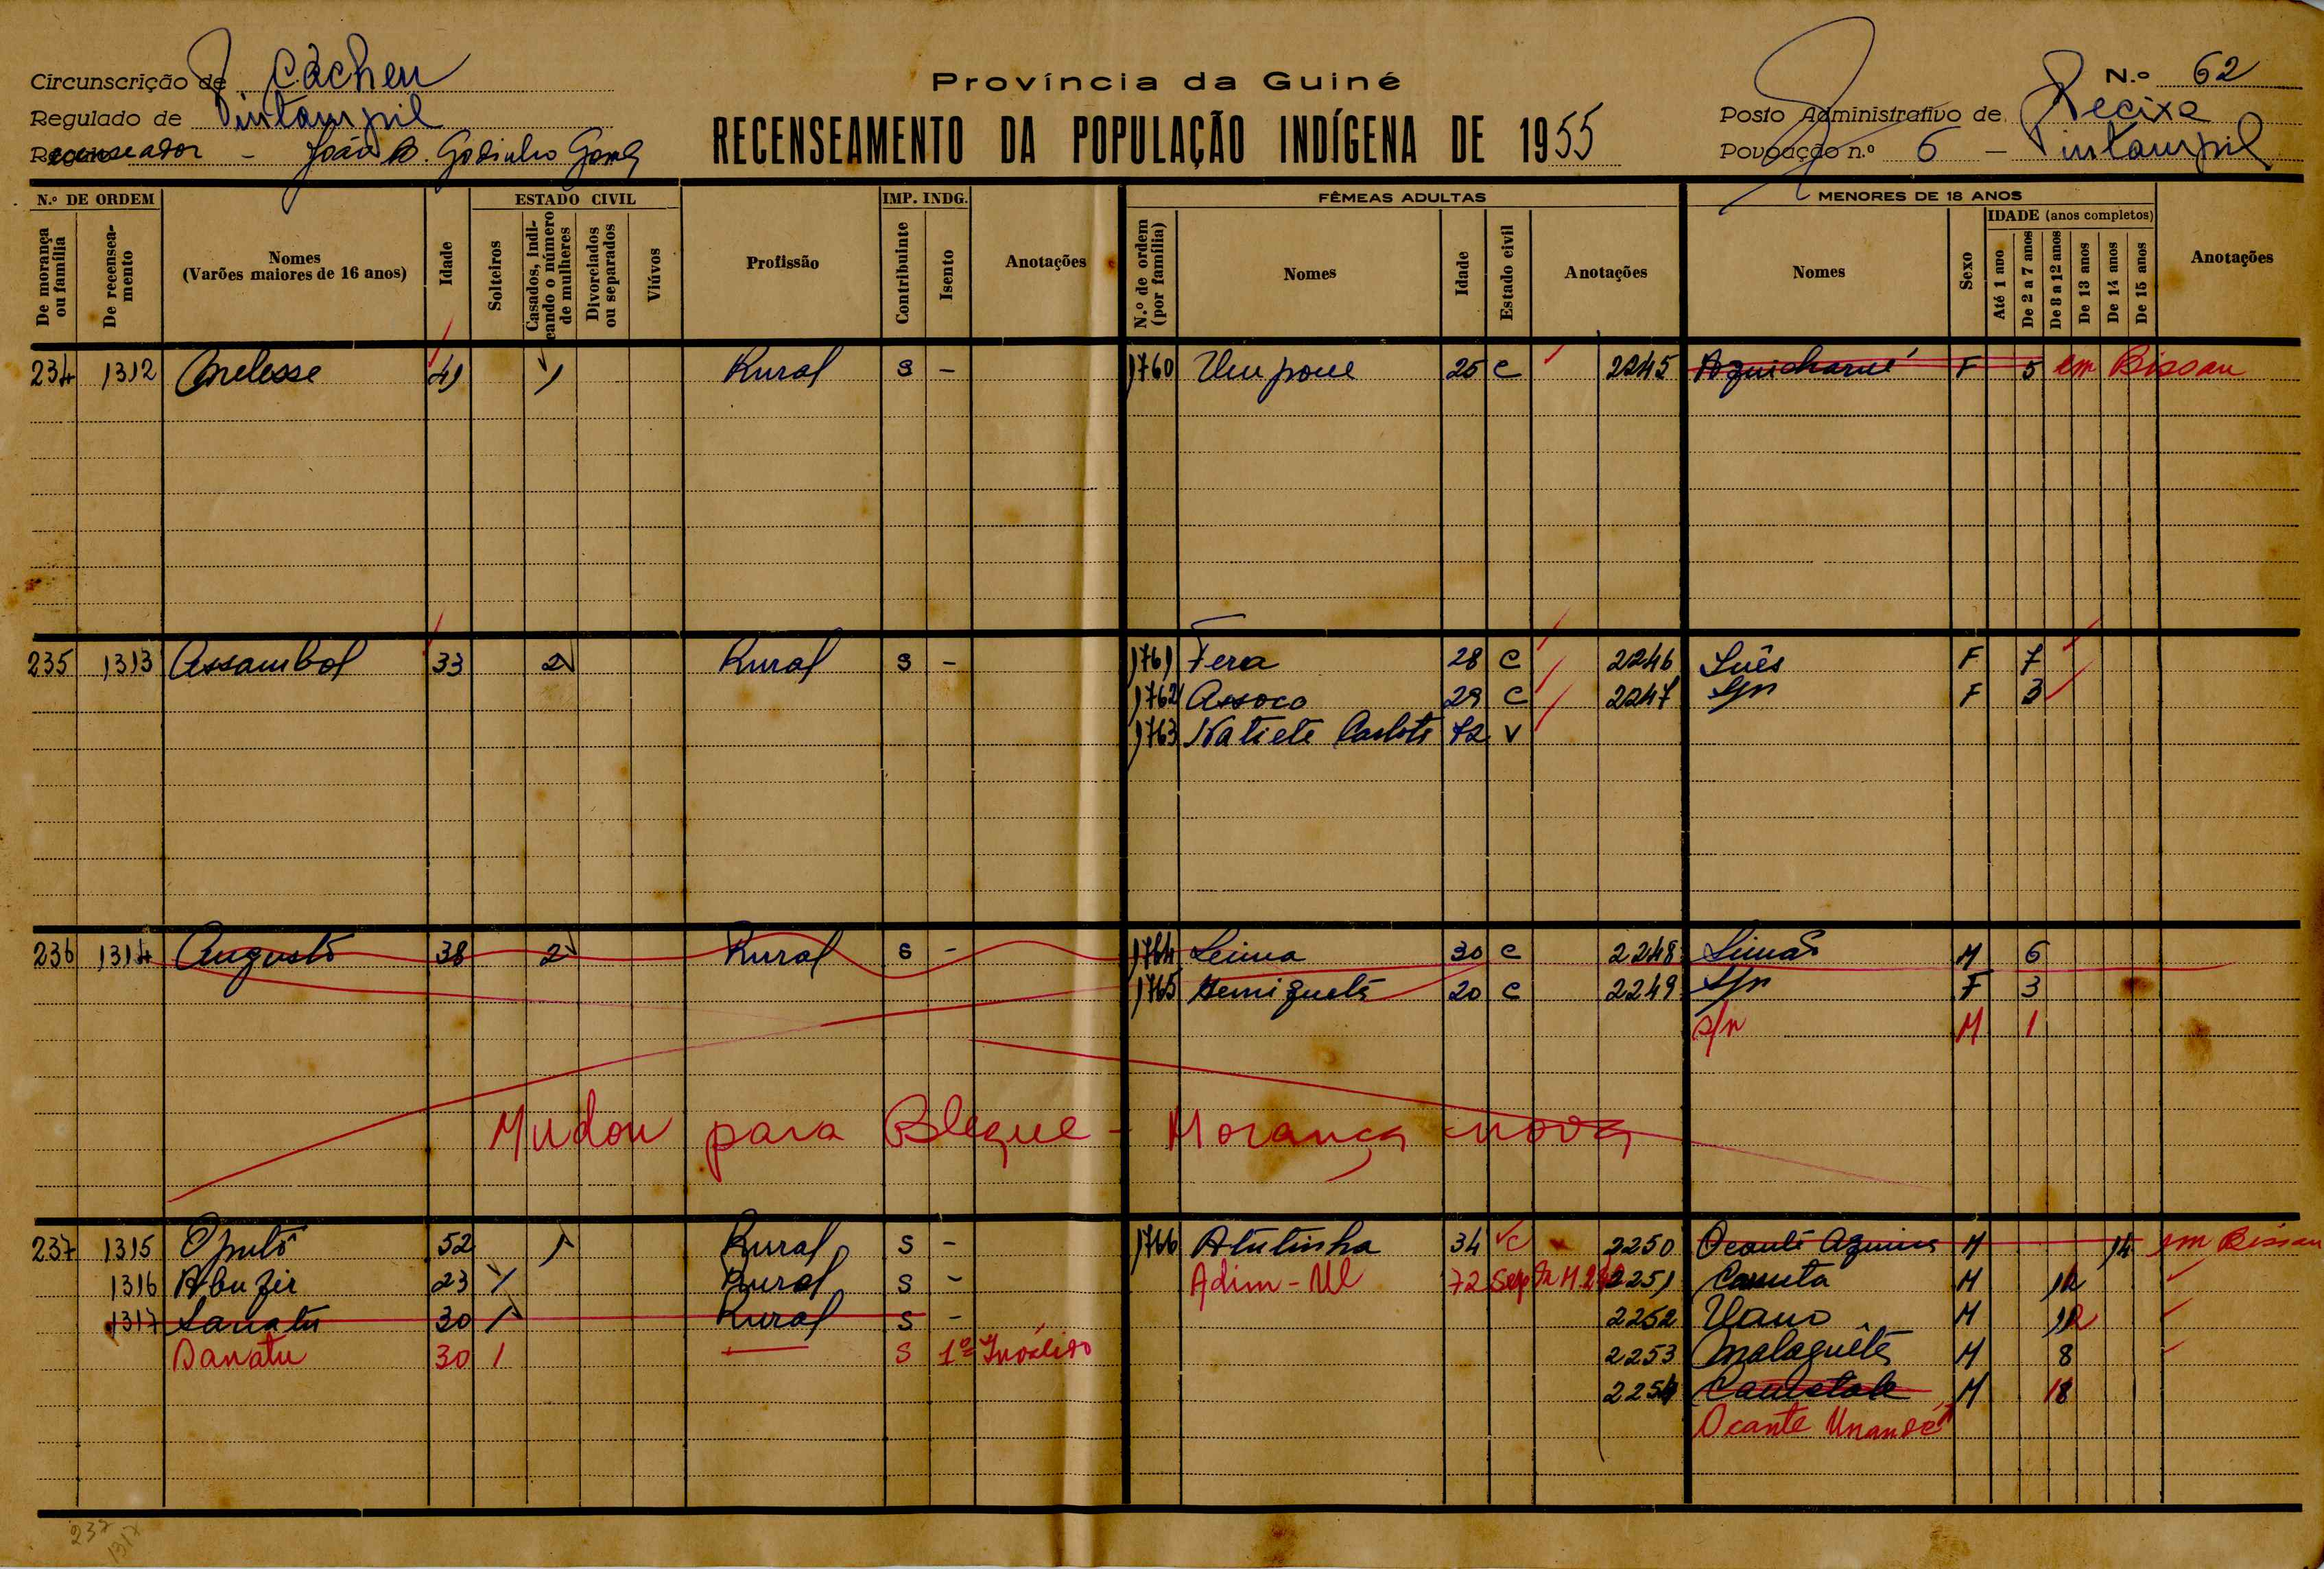 Província da Guiné
RECENSEAMENTO DA POPULAÇÃO INDÍGENA DE 1955
Circunscrição de Cácheu
Regulado de Pintampil
Recenseador - João B. Godinho Gomes
N.º 62
Posto Administrativo de Pecixe
Povoação n.º 6 - Pintampil
N.º DE ORDEM
De morança ou família
De recenseamento
Nomes (Varões maiores de 16 anos)
Idade
ESTADO CIVIL
Solteiros
Casados, indicando o número de mulheres
Divorciados ou separados
Viúvos
Profissão
IMP. INDG.
Contribuinte
Isento
Anotações
FÊMEAS ADULTAS
N.º de ordem (por família)
Nomes
Idade
Estado civil
Anotações
MENORES DE 18 ANOS
Nomes
Sexo
IDADE (anos completos)
Até 1 ano
De 2 a 7 anos
De 8 a 12 anos
De 13 anos
De 14 anos
De 15 anos
Anotações
234 1312 41 1 Rural S - 1760 Umpone 25 C 2245 F 5 em Bissau
235 1313 Assambol 33 2 Rural S - 1761 Fera 28 C 2246 Luês F 7
1762 Assoco 29 C 2247 S/n F 3
1763 Natiete 72 V
236 1314 Augusto 38 2 Rural S - 1764 Leina 30 C 2248 Simão M 6
1765 20 C 2249 S/n F 3
s/n M 1
Mudou para Bleque - Morança nova
237 1315 Oputô 52 1 Rural S - 1766 Atutinha 34 C 2250 M 14 em Bissau
1316 Abuzir 23 1 Rural S - Adim - Ul 72 Sep 2251 Canuta M 12
1317 Sanatu 30 1 Rural S - 2252 Uano M 12
Danatu 30 1 — S 1º Inválido 2253 Malaguêta M 8
2254 M 18
Ocante
237
1317